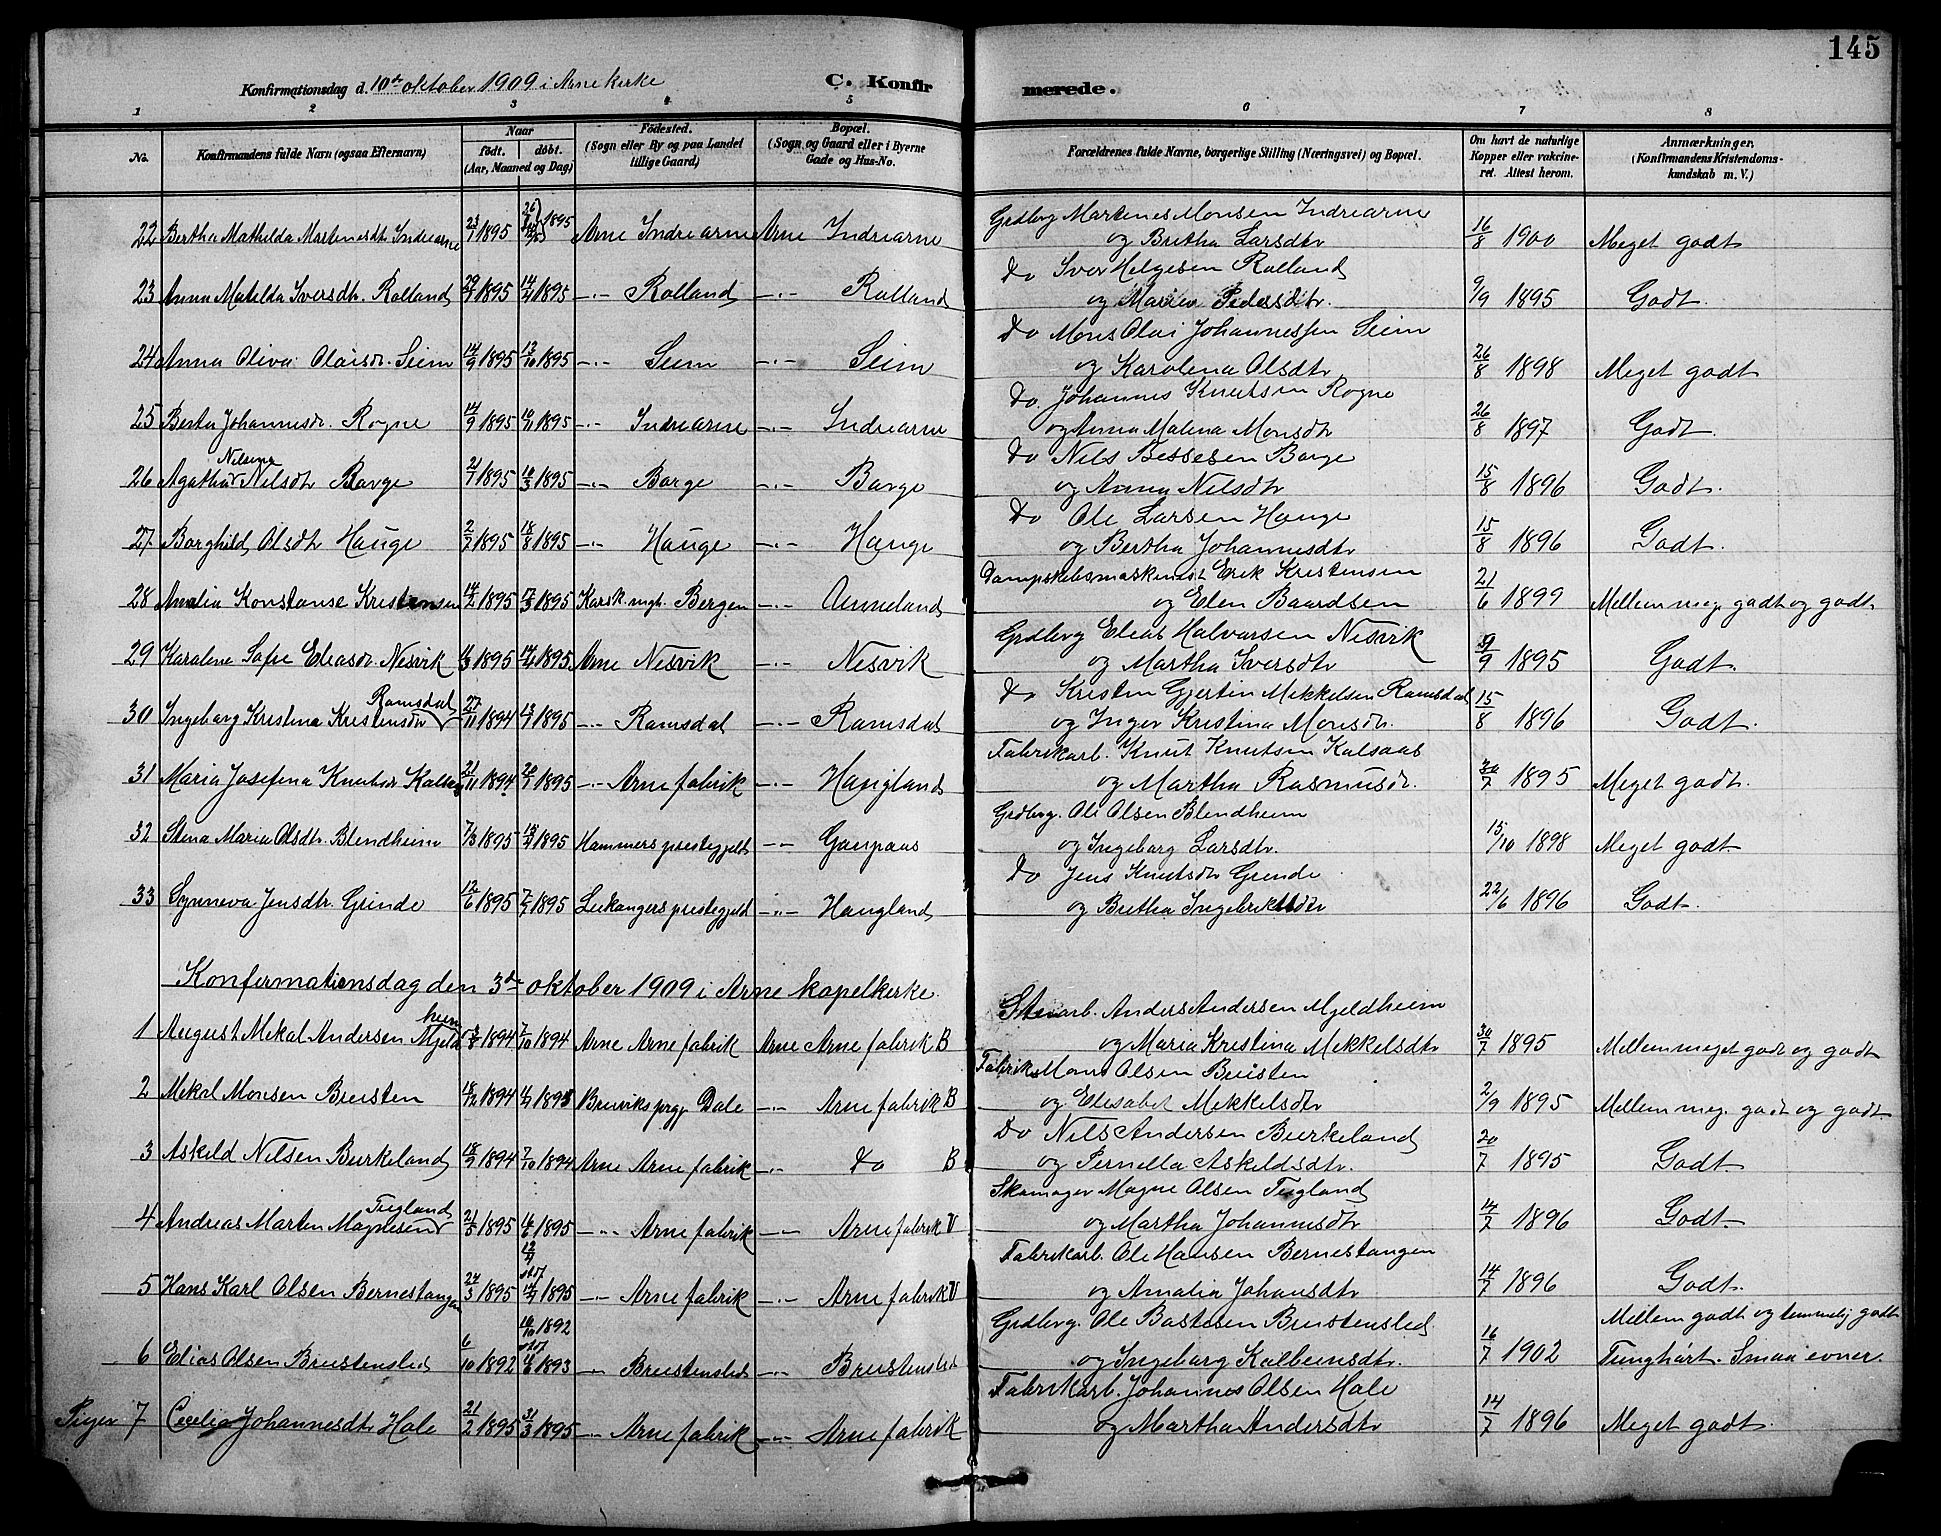 145
Konfirmationsdag d. 10de oktober 1909 i Arne kirke
C. Konfirmerede.
1 2 3 4 5 6 7 8
No. Konfirmandens fulde Navn (ogsaa Efternavn) Naar født. døbt. (Aar, Maaned og Dag) Fødested. (Sogn eller By og paa Landet tillige Gaard) Bopæl. (Sogn og Gaard eller i Byerne Gade og Hus-No. Forældrenes fulde Navne, borgerlige Stilling (Næringsvei) og Bopæl. Om havt de naturlige Kopper eller vaccineret. Attest herom. Anmærkninger, (Konfirmandens Kristendomskundskab m. V.)
22 Bertha Mathilda Martenesdt Indrearne 1895 1895 Arne Indrearne Arne Indrearne Grdbrg Martenes Monsen Indrearne
og Britha Larsdtr 16/8 1900 Meget godt
23 Anna Matilda Iversdtr. Rolland 1895 1895 -"- Rolland -"- Rolland Do Iver Helgesen Rolland
og Maria Pedersdtr. 9/9 1895 Godt.
24 Anna Oliva Olaisdr. Seim 14/9 1895 13/10 1895 -"- Seim -"- Seim Do Mons Olai Johannessen Seim
og Karolena Olsdtr 26/8 1898 Meget godt
25 Berta Johannesdr. Rogne 14/9 1895 10/11 1895 -"- Indrearne -"- Indrearne Do. Johannes Knutsen Rogne
og Anna Malena Monsdtr 26/8 1897 Godt.
26 Agatha Nilsine Nilsdtr Borge 1895 1895 -"- Borge -"- Borge Do Nils Bessesen Borge
og Anna Nilsdtr 15/8 1896 Godt.
27 Borghild Olsdtr Hauge 2/7 1895 18/8 1895 -"- Hauge -"- Hauge Do Ole Larsen Hauge
og Bertha Johannesdtr 15/8 1896 Godt.
28 Amalia Konstanse Kristensen 14/2 1895 17/3 1895 Korsk. mgh. Bergen -"- Anneland Dampskibsmaskinist Erik Kristensen
og Elen Baardsen 21/6 1899 Mellem meg. godt og godt
29 Karolene Sofie Eleasdr. Nesvik 1895 1895 Arne Nesvik -"- Nesvik Grdbrg Elias Halvorsen Nesvik
og Martha Iversdtr 9/9 1895 Godt.
30 Ingeborg Kristina Kristensdtr Ramsdal 27/11 1894 1895 -"- Ramsdal -"- Ramsdal Do Kristen Gjertin Mekkelsen Ramsdal
og Inger Kristina Monsdr. 15/8 1896 Godt.
31 Maria Josefina Knutsdr 21/11 1894 20/1 1895 -"- Arne fabrik -"- Haugland Fabrikarb. Knut Knutsen Kalsaas
og Martha Rasmusdr. 30/7 1895 Meget godt.
32 Stena Maria Olsdtr. Blendheim 7/3 1895 1895 Hammers prestegjeld -"- Gaupaas Grdbrg. Ole Olsen Blendheim
og Ingeborg Larsdtr. 15/10 1898 Meget godt.
33 Synneva Jensdtr. Grinde 12/6 1895 7/7 1895 Leikangers prestegjeld -"- Haugland Do Jens Knutsdtr Grende
og Britha Ingebriktsdtr 22/6 1896 Godt.
Konfirmationsdag den 3de oktober 1909 i Arne kapelkirke.
1 August Mekal Andersen Mjeldheim 3/8 1894 7/10 1894 Arne Arne fabrik Arne Arne fabrik B Stenarb. Anders Andersen Mjeldheim
og Maria Kristina Mekkelsdtr 30/7 1895 Mellem meget godt og godt
2 Mekal Monsen Breisten 18/12 1894 1895 Bruviks prgj. Dale -"- Arne fabrik B Fabriks Mons Olsen Breisten
og Elesabet Mekkelsdtr 2/9 1895 Mellem meg. godt og godt
3 Askeld Nilsen Birkeland 18/9 1894 7/10 1894 Arne Arne fabrik -"- Do B Do Nils Andersen Birkeland
og Pernella Askeldsdtr. 20/7 1895 Godt
4 Andreas Marten Magnesen Tugland 21/5 1895 1895 -"- Arne fabrik -"- Arne fabrik V Skomager Magne Olsen Tugland
og Martha Johannesdtr 14/7 1896 Godt.
5 Hans Karl Olsen Bernestangen 24/3 1895 1895 -"- Arne fabrik -"- Arne fabrik V Fabrikarb. Ole Hansen Bernestangen
og Amalia Johansdtr 14/7 1896 Godt.
6 Elias Olsen Breistensled 6/10 1892 16/10 1892 1893 -"- Breistensled -"- Breistensled Grdbrg. Ole Bastesen Breistensled
og Ingeborg Kolbeinsdtr. 16/7 1902 Mellem godt og temmelig godt
Tunghørt. Smaa evner.
Piger 7 Cecelia Johannesdtr Hole 21/2 1895 31/3 1895 -"- Arne fabrik -"- Arne fabrik Fabrikarb. Johannes Olsen Hole
og Martha Andersdtr 14/7 1896 Meget godt.